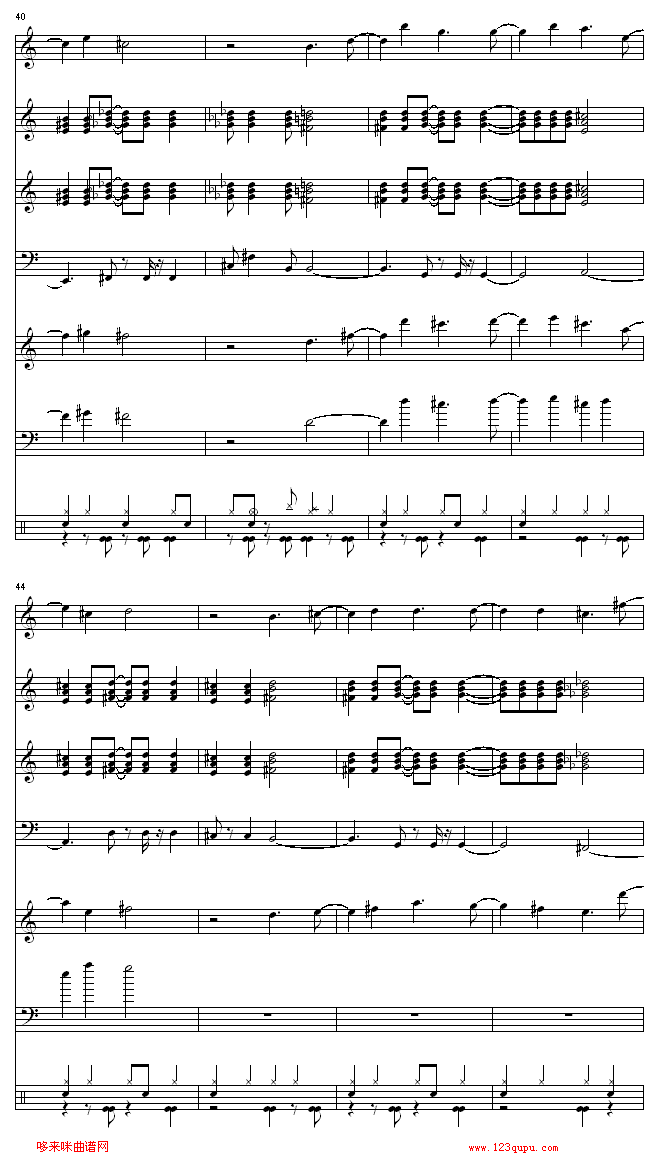 40
44
哆来咪曲谱网
www.123qupu.com